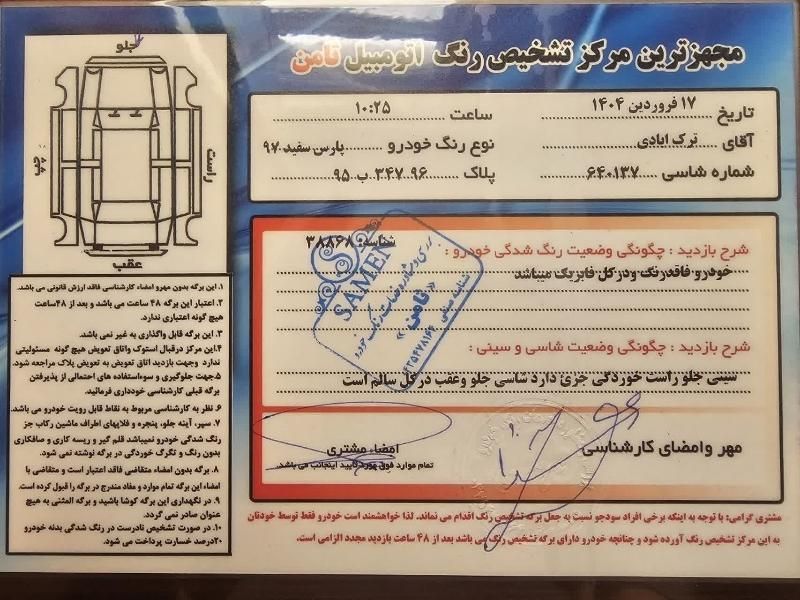 مجهزترین مرکز تشخیص رنگ اتومبیل ثامن
تاریخ ۱۷ فروردین ۱۴۰۴ ساعت ۱۰:۲۵
آقای ترک ابادی نوع رنگ خودرو پارس سفید ۹۷
شماره شاسی ۶۴۰۱۳۷ پلاک ۹۶ ۳۴۷ ب ۹۵
شناسه: ۳۸۸۶۸
شرح بازدید : چگونگی وضعیت رنگ شدگی خودرو :
خودرو فاقدرنگ ودرکل فابریک میباشد
شرح بازدید : چگونگی وضعیت شاسی و سینی :
سینی جلو راست خوردگی جزئ دارد شاسی جلو وعقب درکل سالم است
مهر وامضای کارشناسی
امضاء مشتری
تمام موارد فوق مورد تایید اینجانب می باشد.
SAMEN
«ثامن»
جلو
راست
چپ
عقب
۱. این برگه بدون مهرو امضاء کارشناسی فاقد ارزش قانونی می باشد.
۲. اعتبار این برگه ۴۸ ساعت می باشد و بعد از ۴۸ساعت
هیچ گونه اعتباری ندارد.
۳. این برگه قابل واگذاری به غیر نمی باشد.
۴.این مرکز درقبال استوک واتاق تعویض هیچ گونه مسئولیتی
ندارد وجهت بازدید اتاق تعویض به تعویض پلاک مراجعه شود.
۵.جهت جلوگیری و سوءاستفاده های احتمالی از پذیرفتن
برگه قبلی کارشناسی خودداری فرمائید.
۶. نظر به کارشناسی مربوط به نقاط قابل رویت خودرو می باشد.
۷. سپر، آینه جلو، پنجره و قلابهای اطراف ماشین رکاب جز
رنگ شدگی خودرو نمیباشد قلم گیر و ریسه کاری و صافکاری
بدون رنگ و تگرگ خوردگی در برگه نوشته نمی شود.
۸. برگه بدون امضاء متقاضی فاقد اعتبار است و متقاضی با
امضاء این برگه تمام موارد و مفاد مندرج در برگه را قبول کرده است.
۹. در نگهداری این برگه کوشا باشید و برگه المثنی به هیچ
عنوان صادر نمی گردد.
۱۰. در صورت تشخیص نادرست در رنگ شدگی بدنه خودرو
۲۰درصد خسارت پرداخت می شود.
مشتری گرامی: با توجه به اینکه برخی افراد سودجو نسبت به جعل برگه تشخیص رنگ اقدام می نماند. لذا خواهشمند است خودرو فقط توسط خودتان
به این مرکز تشخیص رنگ آورده شود و چنانچه خودرو دارای برگه تشخیص رنگ می باشد بعد از ۴۸ ساعت بازدید مجدد الزامی است.